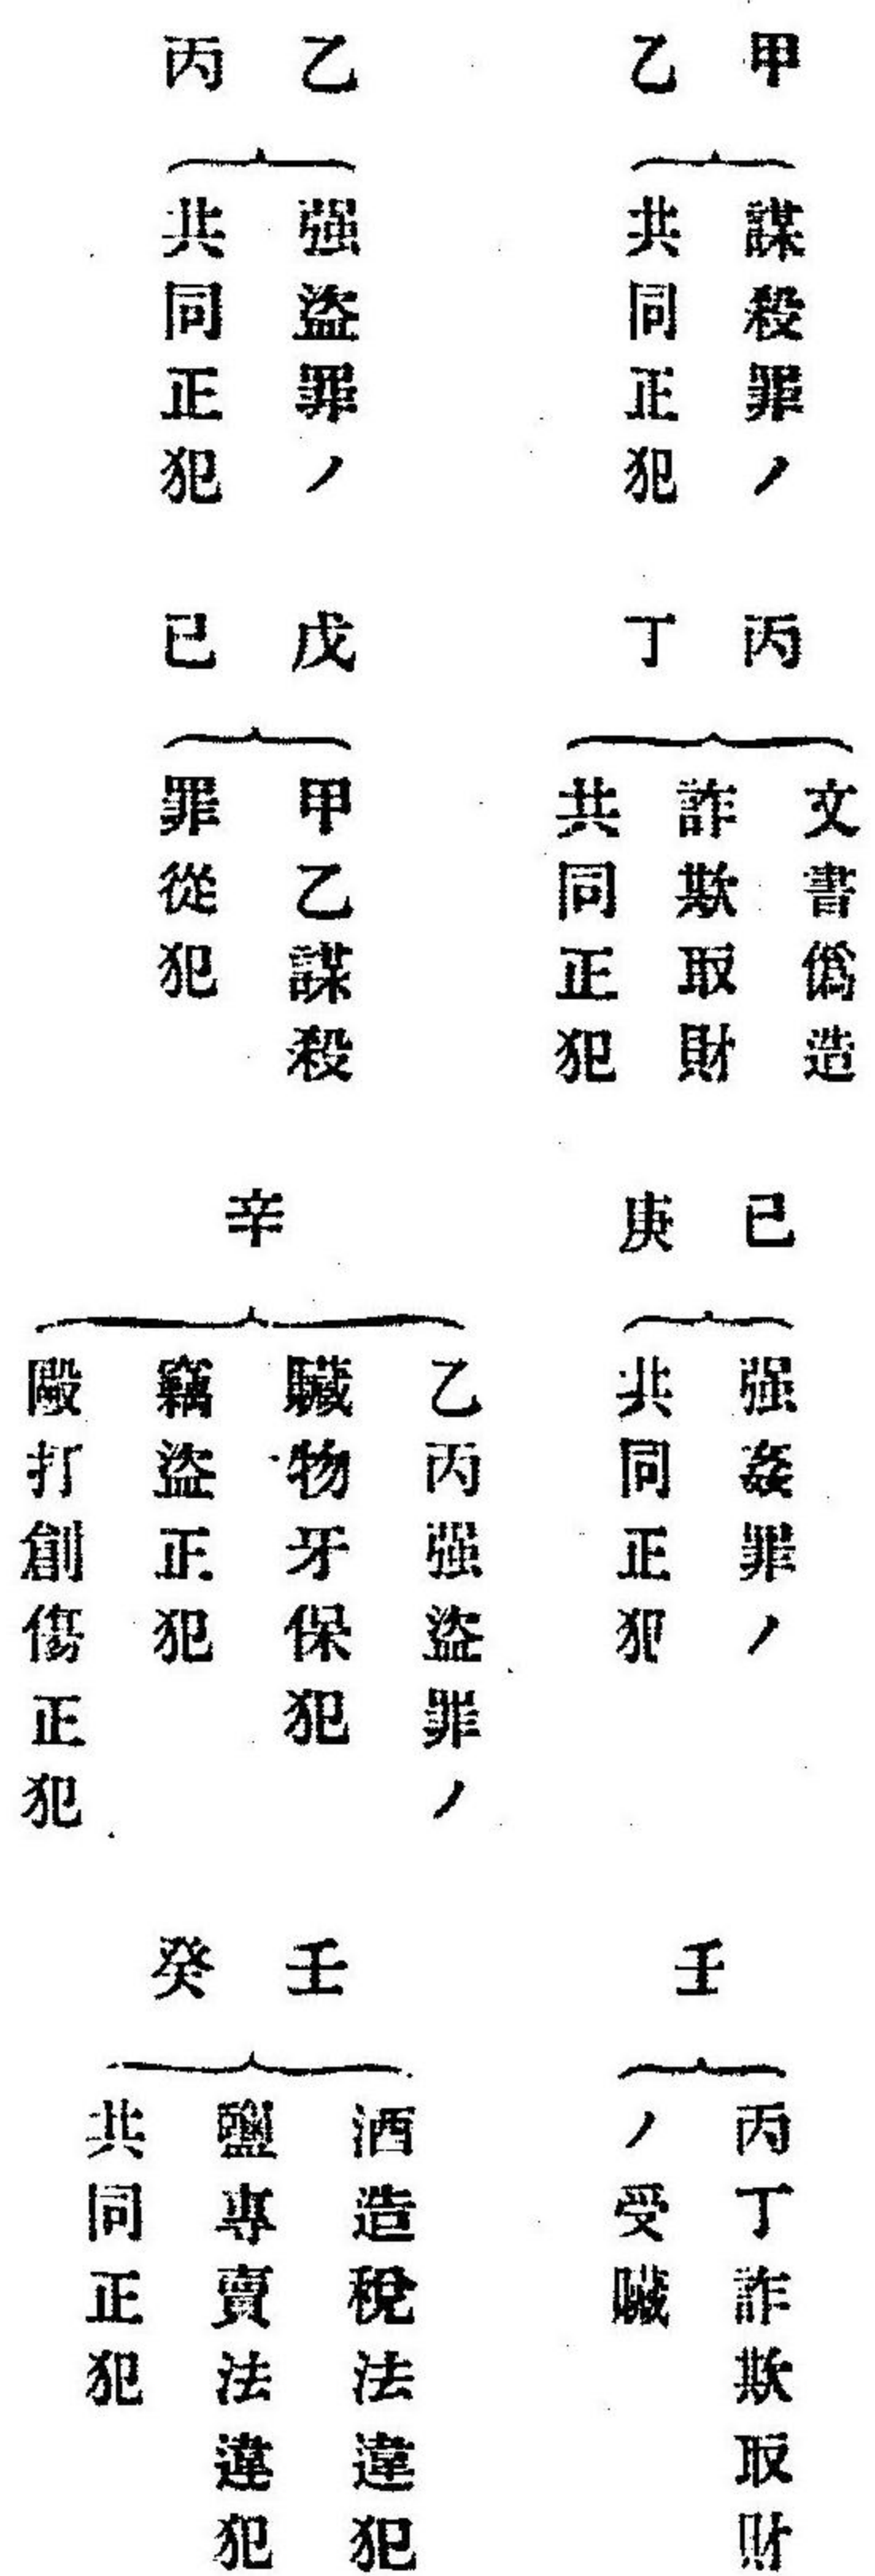 甲
乙
謀殺罪ノ
共同正犯
丙
丁
文書僞造
詐欺取財
共同正犯
己
庚
强姦罪ノ
共同正犯
壬
丙丁詐欺取財
ノ受贓
乙
丙
强盜罪ノ
共同正犯
戊
己
甲乙謀殺
罪從犯
辛
乙丙强盜罪ノ
贓物牙保犯
竊盜正犯
毆打創傷正犯
壬
癸
酒造稅法違犯
鹽專賣法違犯
共同正犯